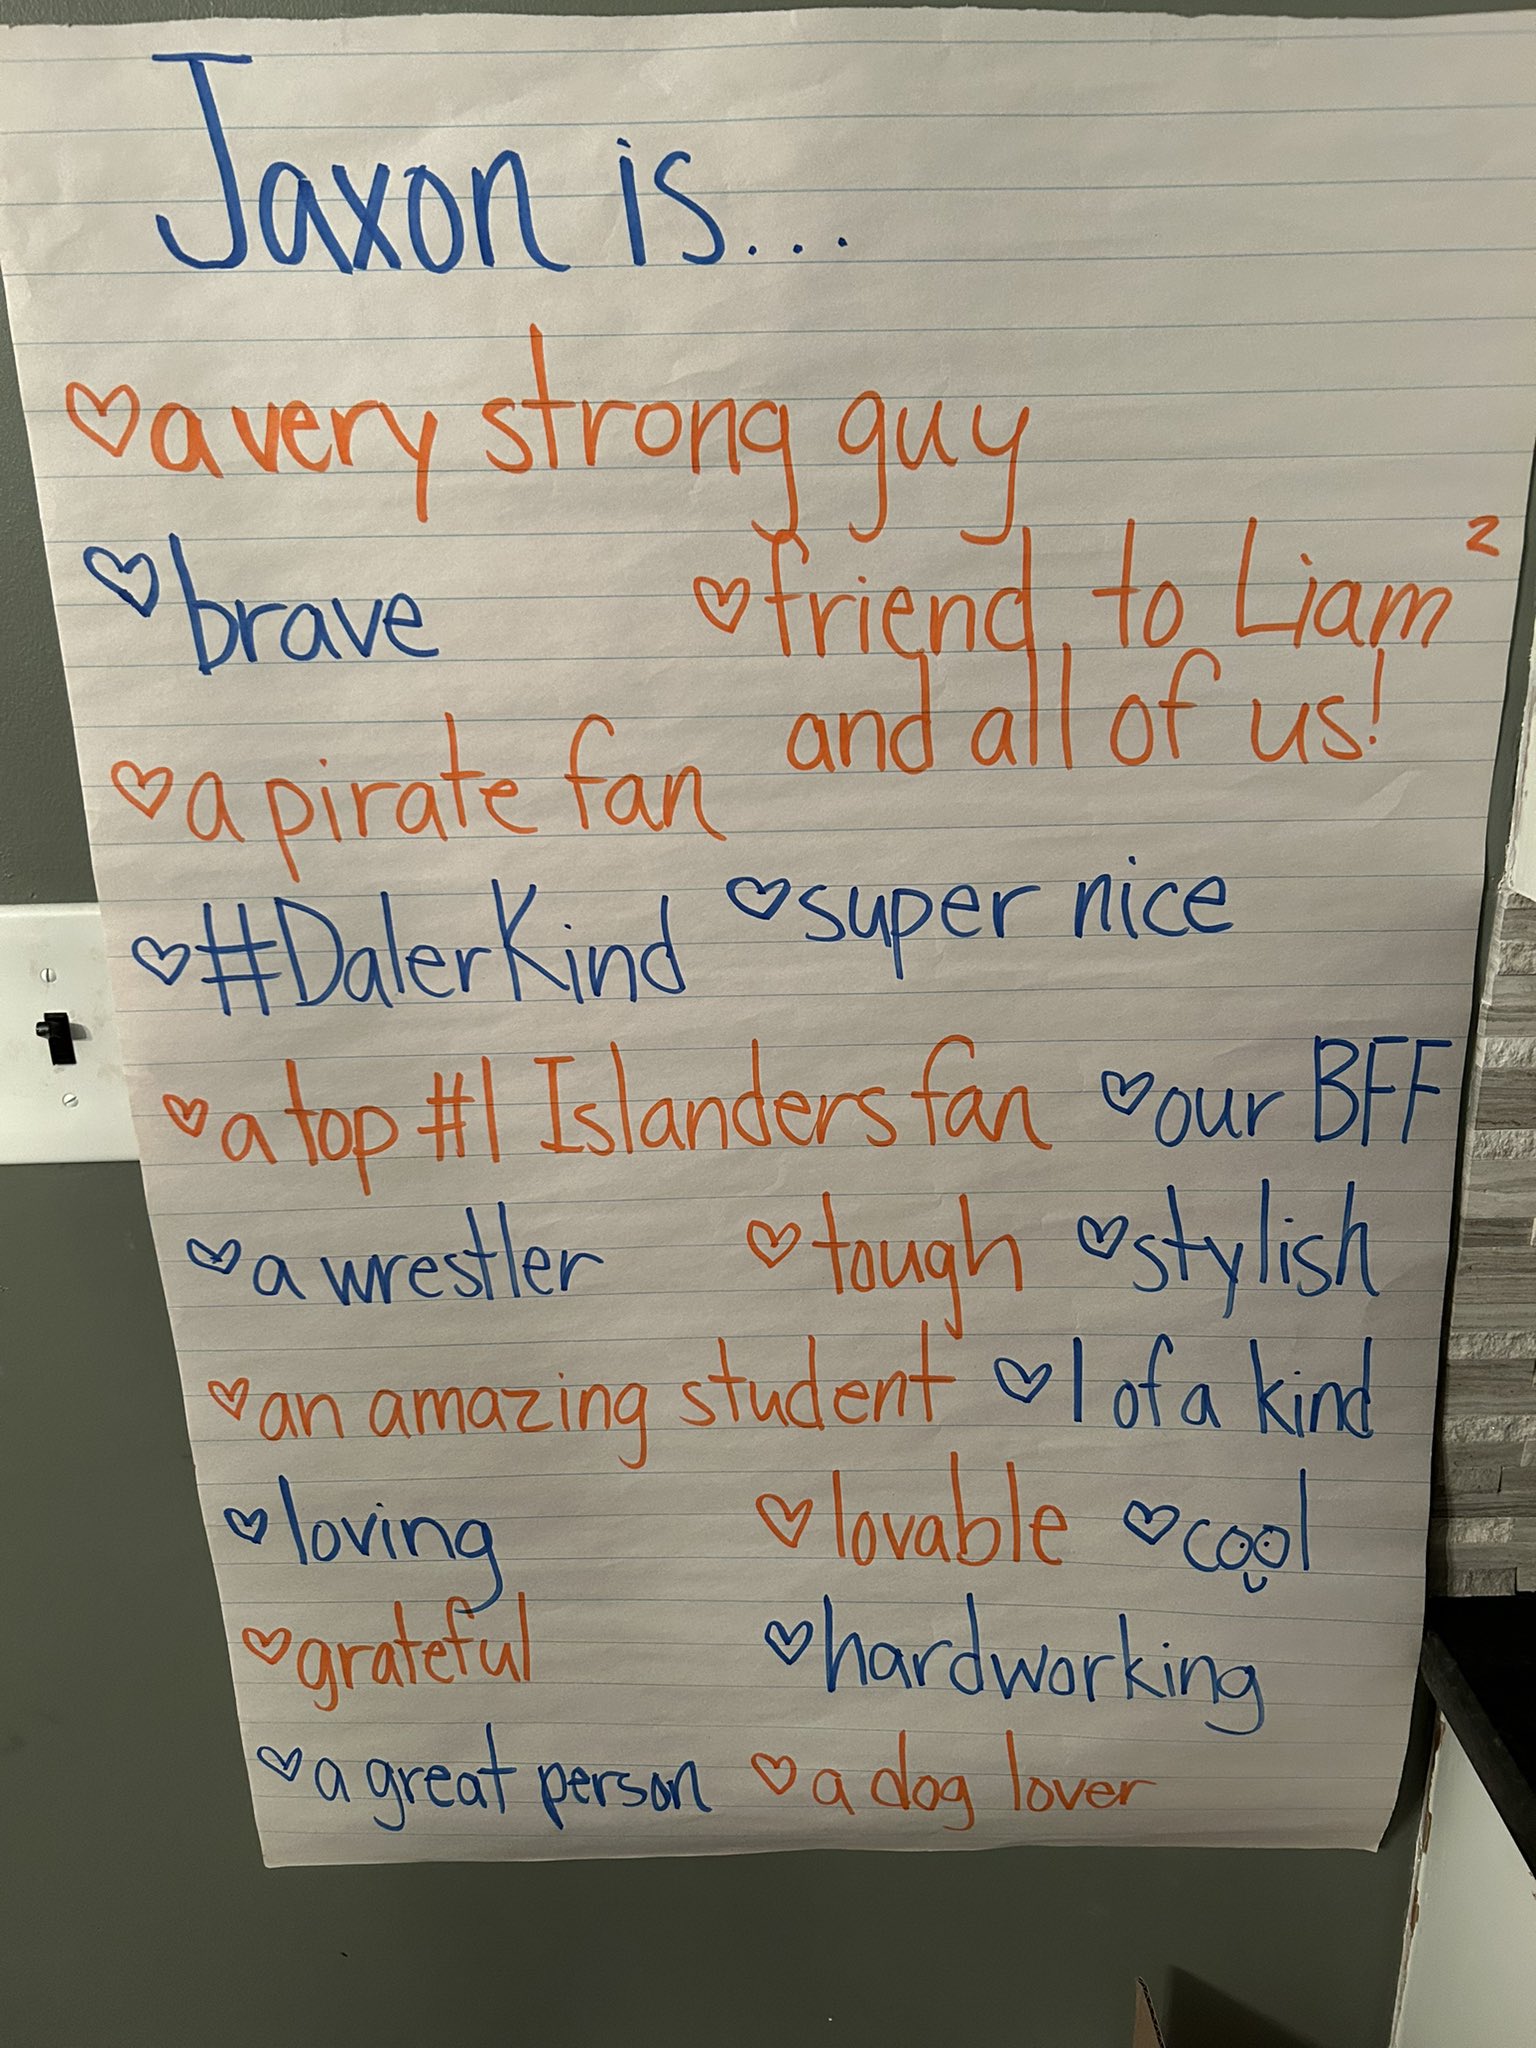 Jaxon is...
♡ a very strong guy
♡ brave
♡ friend to Liam²
and all of us!
♡ a pirate fan
♡ #DalerKind ♡ super nice
♡ a top #1 Islanders fan ♡ our BFF
♡ a wrestler ♡ tough ♡ stylish
♡ an amazing student ♡ 1 of a kind
♡ loving ♡ lovable ♡ cool
♡ grateful ♡ hardworking
♡ a great person ♡ a dog lover